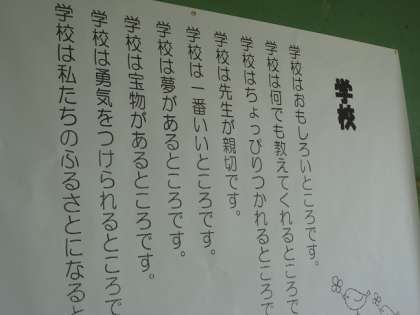 学校
学校はおもしろいところです。
学校は何でも教えてくれるところで
学校はちょっぴりつかれるところで
学校は先生が親切です。
学校は一番いいところです。
学校は夢があるところです。
学校は宝物があるところです。
学校は勇気をつけられるところで
学校は私たちのふるさとになると